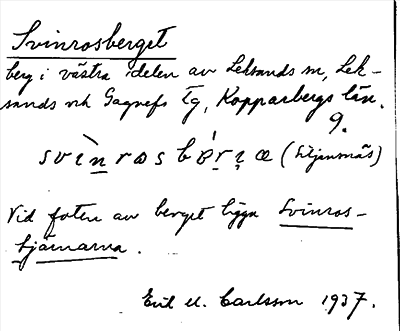 Svinrosberget
berg i västra delen av Leksands sn, Lek-
sands och Gagnefs tg, Kopparbergs län.
9.
svìn̲rɷs bǿr̲ı̣æ (Siljansnäs)
Vid foten av berget ligga Svinros-
tjärnarna.
Erik U. Carlsson 1937.